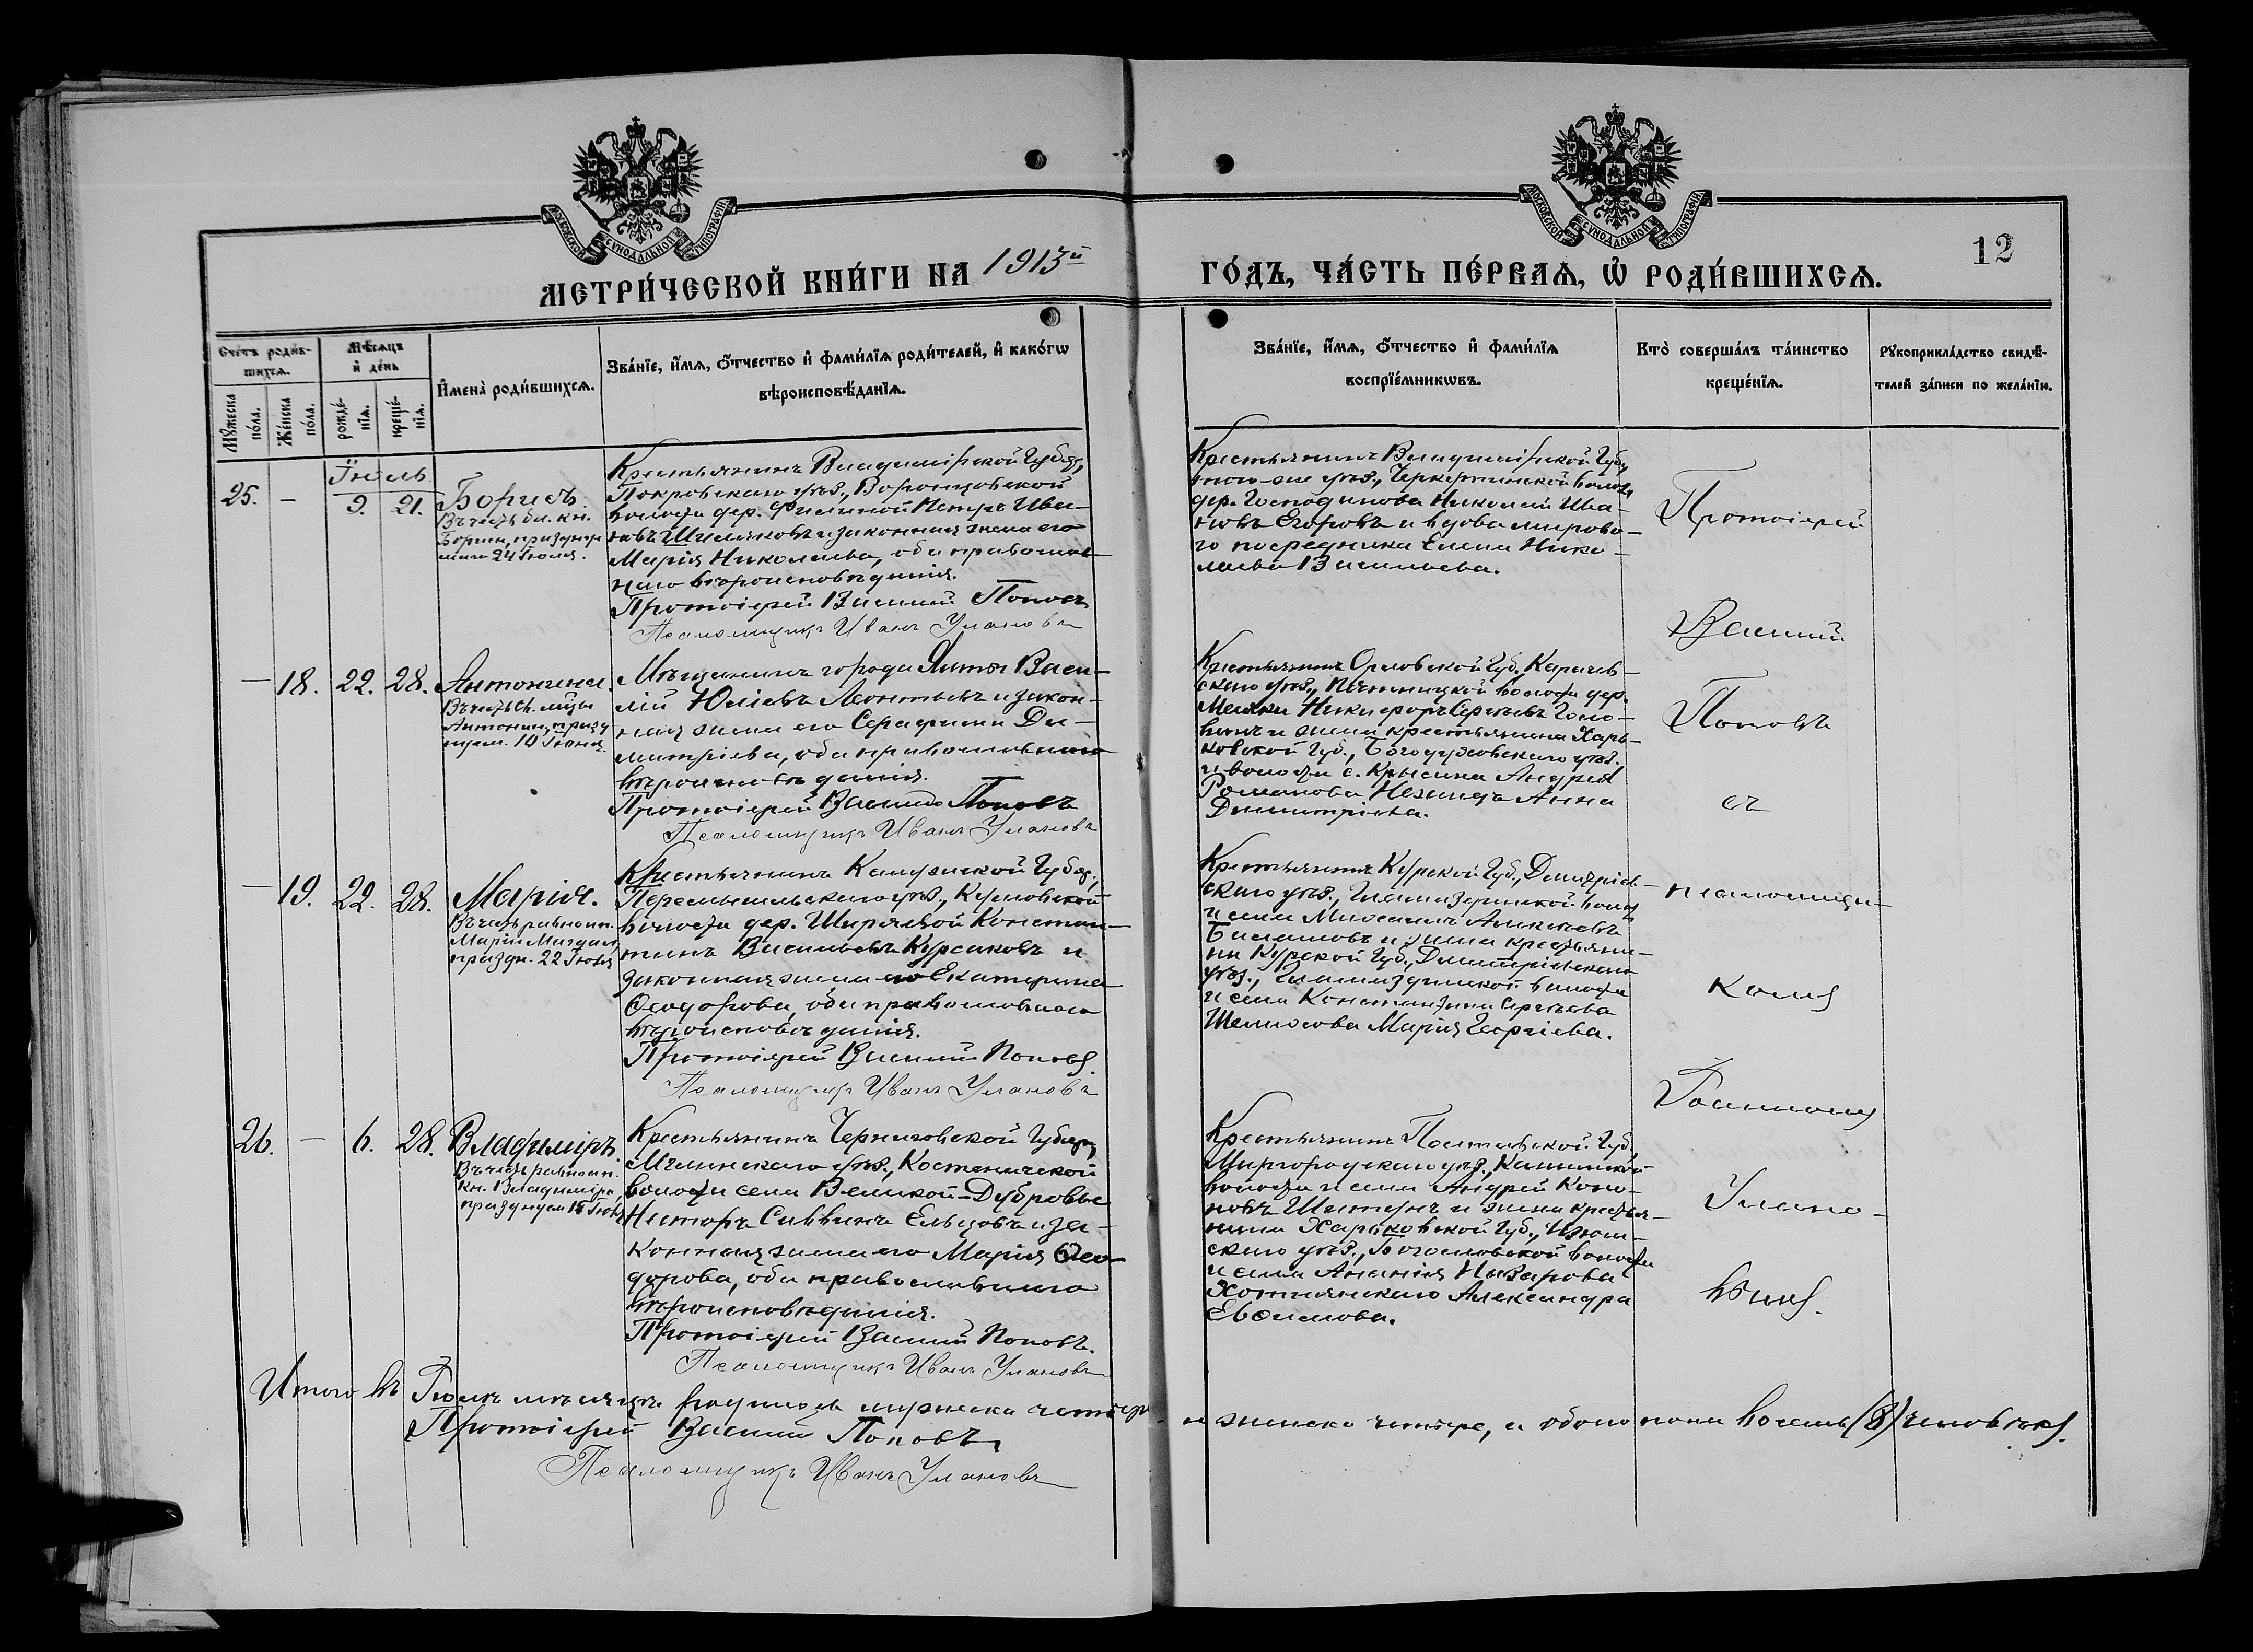 МОСКОВСКОЙ СѴНОДАЛЬНОЙ ТИПОГРАФІИ
МОСКОВСКОЙ СѴНОДАЛЬНОЙ ТИПОГРАФІИ
12
МЕТРИ́ЧЕСКОЙ КНИ́ГИ НА 1913й
ГО́ДЪ, ЧА́СТЬ ПЕ́РВАѦ, Ѡ҆ РОДИ́ВШИХСѦ.
Сче́тъ роди́в-
шихсѧ.
Мꙋ́жеска по́ла.
Же́нска по́ла.
Мѣ́сѧцъ
и҆ де́нь
рожде́-
нїѧ.
креще́-
нїѧ.
И҆мена̀ роди́вшихсѧ.
Зва́нїе, и҆́мѧ, ѻ҆́тчество и҆ фами́лїѧ роди́телей, и҆ како́гѡ
вѣроисповѣ́данїѧ.
Зва́нїе, и҆́мѧ, ѻ҆́тчество и҆ фами́лїѧ
воспрїе́мникѡвъ.
Кто̀ соверша́лъ та́инство
креще́нїѧ.
Рꙋкоприкла́дство свидѣ́-
телей за́писи по жела́нїю.
Іюль
25. — 9. 21. Борисъ
Въ честь бл. кн.
Бориса, празднуе
маго 24 Іюля.
Крестьянинъ Владимірской Губер.,
Покровскаго уѣз., Воронцовской
волости дер. Филиной Петръ Ива-
новъ Шишаковъ и законная жена его
Марія Николаева, оба православ-
наго вѣроисповѣданія.
Протоіерей Василий Поповъ
Псаломщикъ Иванъ Улановъ
Крестьянинъ Владимірской Губ.,
того-же уѣз., Черкутинской волос.
дер. Господинова Николай Ива-
новъ Егоровъ и вдова мирово-
го посредника Елена Нико-
лаева Васильева.
— 18. 22. 28. Антонина.
Въ честь св. муц.
Антонины, празд
нуем. 10 Іюня.
Мѣщанинъ города Ялты Васи-
лій Юліевъ Леонтьевъ и закон-
ная жена его Серафима Ди-
митріева, оба православнаго
вѣроисповѣданія.
Протоіерей Василий Поповъ
Псаломщикъ Иванъ Улановъ
Крестьянинъ Орловской Губ., Карачев-
скаго уѣз., Пятницкой волости дер.
Никифоръ Сергѣевъ Голо-
и жена крестьянина Харь-
ковской Губ., Богодуховскаго уѣз.
и волости с. Крысина Андрея
Романова Анна
Димитріева.
— 19. 22. 28. Марія.
Въ честь равноап.
Маріи Магдал.
праздн. 22 Іюля
Крестьянинъ Калужской Губер.,
Перемышльскаго уѣз.,
волости дер. Ширяевой Констан-
тинъ Васильевъ Курсаковъ и
законная жена его Екатерина
Ѳеодорова, оба православнаго
вѣроисповѣданія.
Протоіерей Василий Поповъ.
Псаломщикъ Иванъ Улановъ
Крестьянинъ Курской Губ., Дмитріев-
скаго уѣз., волос.
и села Михаилъ Алексѣевъ
и жена крестьяни-
на Курской Губ., Димитріевскаго
уѣз., волости
и села Константина Сергѣева
Марія Георгіева.
26. — 6. 28. Владиміръ.
Въ честь равноап.
Кн. Владиміра,
празднуем 15 Іюля
Крестьянинъ Черниговской Губер.,
Мглинскаго уѣз., Костеничской
волости села Великой-Дубровы
Несторъ Саввинъ Ельцовъ и за-
конная жена его Марія Ѳео-
дорова, оба православнаго
вѣроисповѣданія.
Протоіерей Василий Поповъ.
Псаломщикъ Иванъ Улановъ
Крестьянинъ Полтавской Губ.
Миргородскаго уѣз.,
волости и села Андрей Коно-
новъ и жена крестья-
нина Харьковской Губ., Изюм-
скаго уѣз., Богословской волости
и села Ананія Назарова
Хотнянскаго Александра
Евѳимова.
Протоіерей
Василий
Поповъ
съ
псаломщи-
комъ
Іоанномъ
Улано-
вымъ.
Итого въ Іюлѣ мѣсяцѣ родилось мужеска четыре и женска четыре, а обоего пола восемь (8) человѣкъ.
Протоіерей Василий Поповъ
Псаломщикъ Иванъ Улановъ